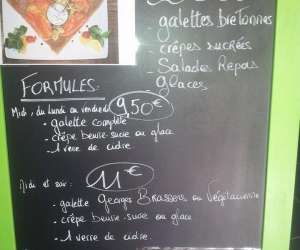 - galettes bretonnes
- crêpes sucrées
- Salades Repas
glaces
FORMULES.
Midi, du lundi au vendredi 9,50€
- galette complète
- crêpe beurre-sucre ou glace
- 1 verre de cidre
Midi et soir: 11€
- galette Georges Brassens ou Végétarienne
- crêpe beurre-sucre ou glace
- 1 verre de cidre